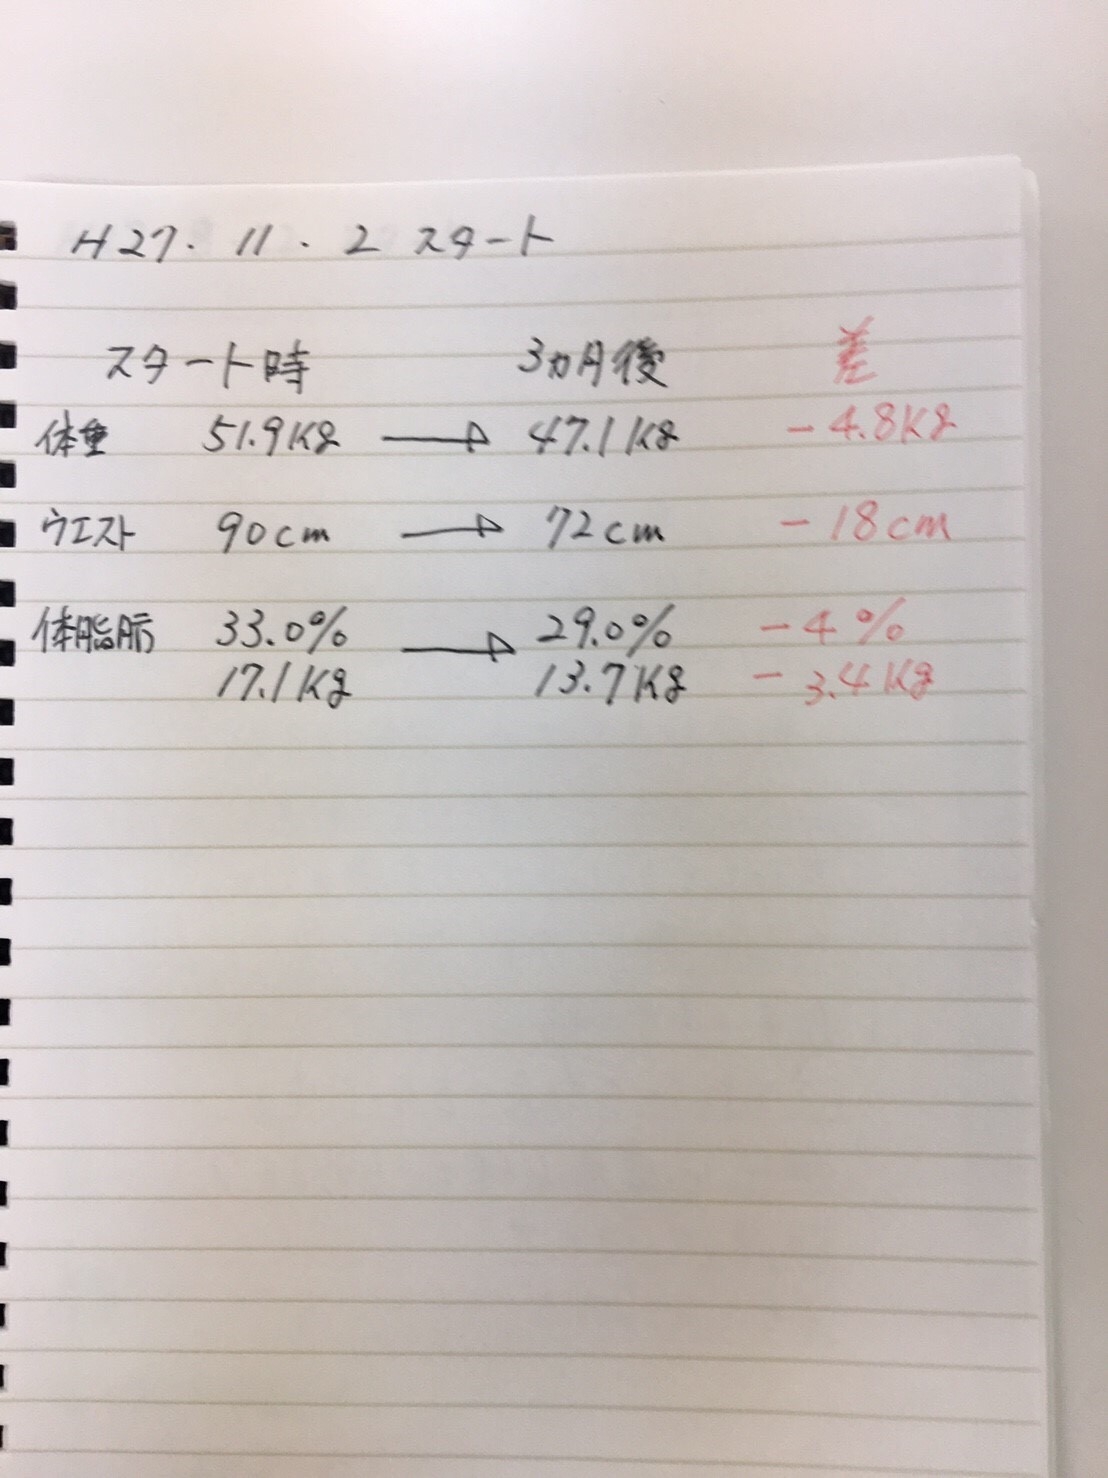 H27.11.2 スタート
スタート時 3ヵ月後 差
体重 51.9Kg → 47.1Kg -4.8Kg
ウエスト 90cm → 72cm -18cm
体脂肪 33.0% → 29.0% -4%
17.1Kg 13.7Kg -3.4Kg